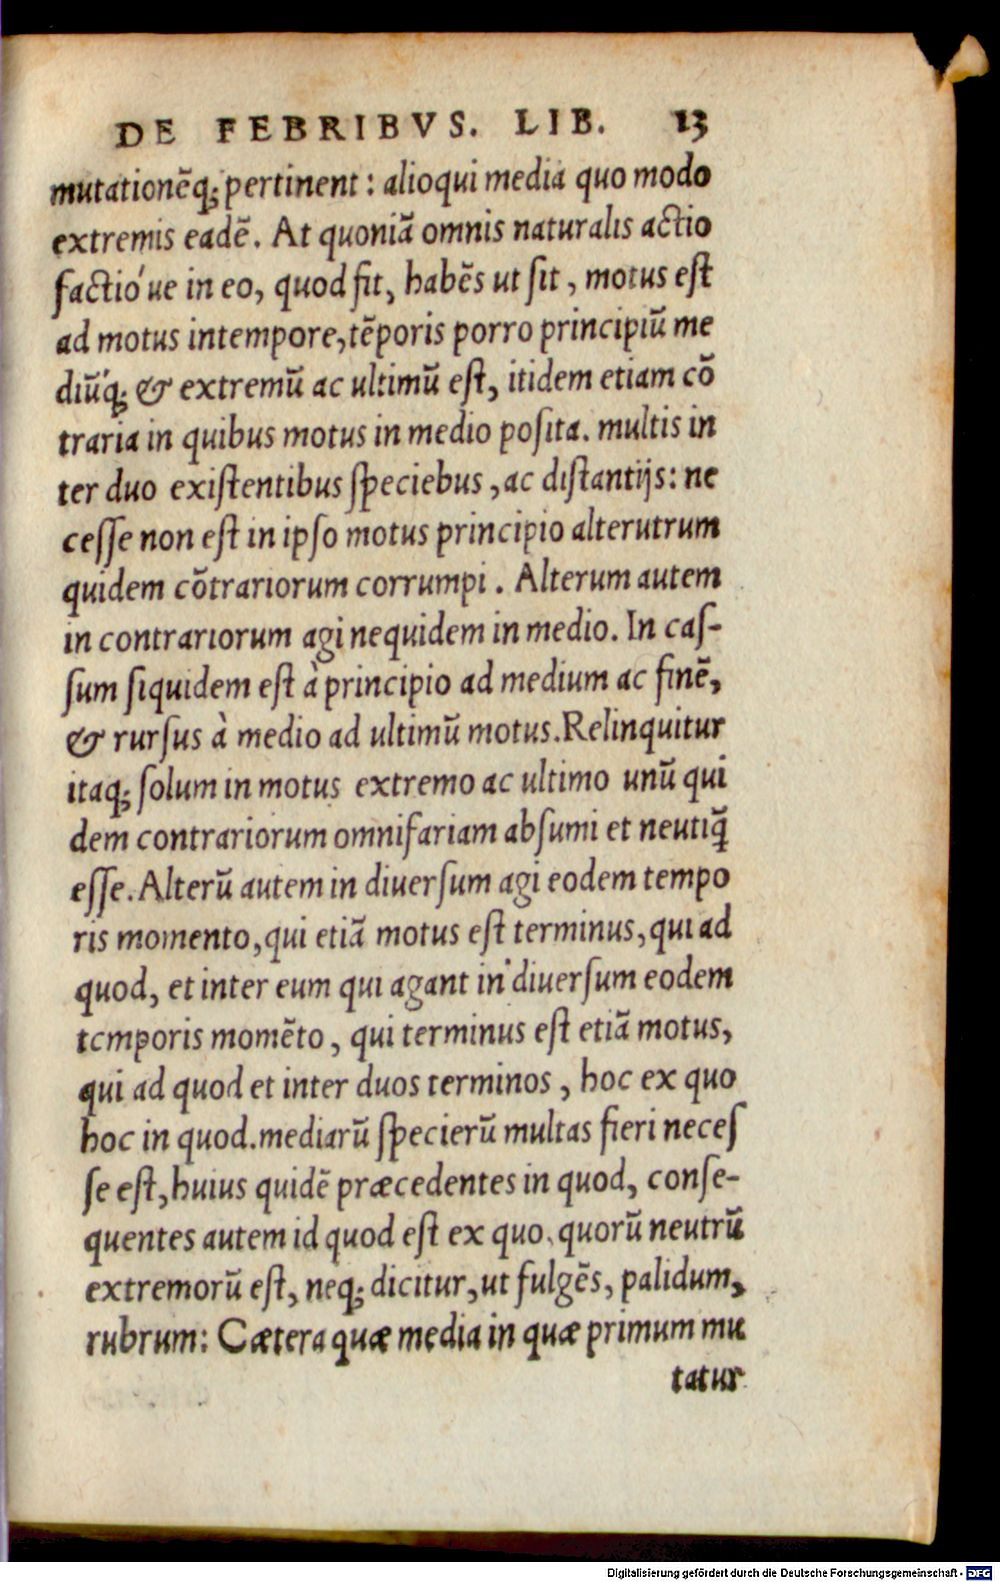 DE FEBRIBVS. LIB. 13
mutationẽq; pertinent: alioqui media quo modo
extremis eadẽ. At quoniã omnis naturalis actio
factió ue in eo, quod fit, habẽs ut sit, motus est
ad motus intempore, tẽporis porro principiũ me
diũq́; & extremũ ac ultimũ est, itidem etiam cõ
traria in quibus motus in medio posita. multis in
ter duo existentibus speciebus, ac distantijs: ne
cesse non est in ipso motus principio alterutrum
quidem cõtrariorum corrumpi. Alterum autem
in contrariorum agi nequidem in medio. In cas-
sum siquidem est à principio ad medium ac finẽ,
& rursus à medio ad ultimũ motus. Relinquitur
itaq; solum in motus extremo ac ultimo unũ qui
dem contrariorum omnifariam absumi et neutiq̃
esse. Alterũ autem in diuersum agi eodem tempo
ris momento, qui etiã motus est terminus, qui ad
quod, et inter eum qui agant in diuersum eodem
temporis momẽto, qui terminus est etiã motus,
qui ad quod et inter duos terminos, hoc ex quo
hoc in quod. mediarũ specierũ multas fieri neces
se est, huius quidẽ præcedentes in quod, conse-
quentes autem id quod est ex quo. quorũ neutrũ
extremorũ est, neq; dicitur, ut fulgẽs, palidum,
rubrum: Cætera quæ media in quæ primum mu
tatur
Digitalisierung gefördert durch die Deutsche Forschungsgemeinschaft - DFG